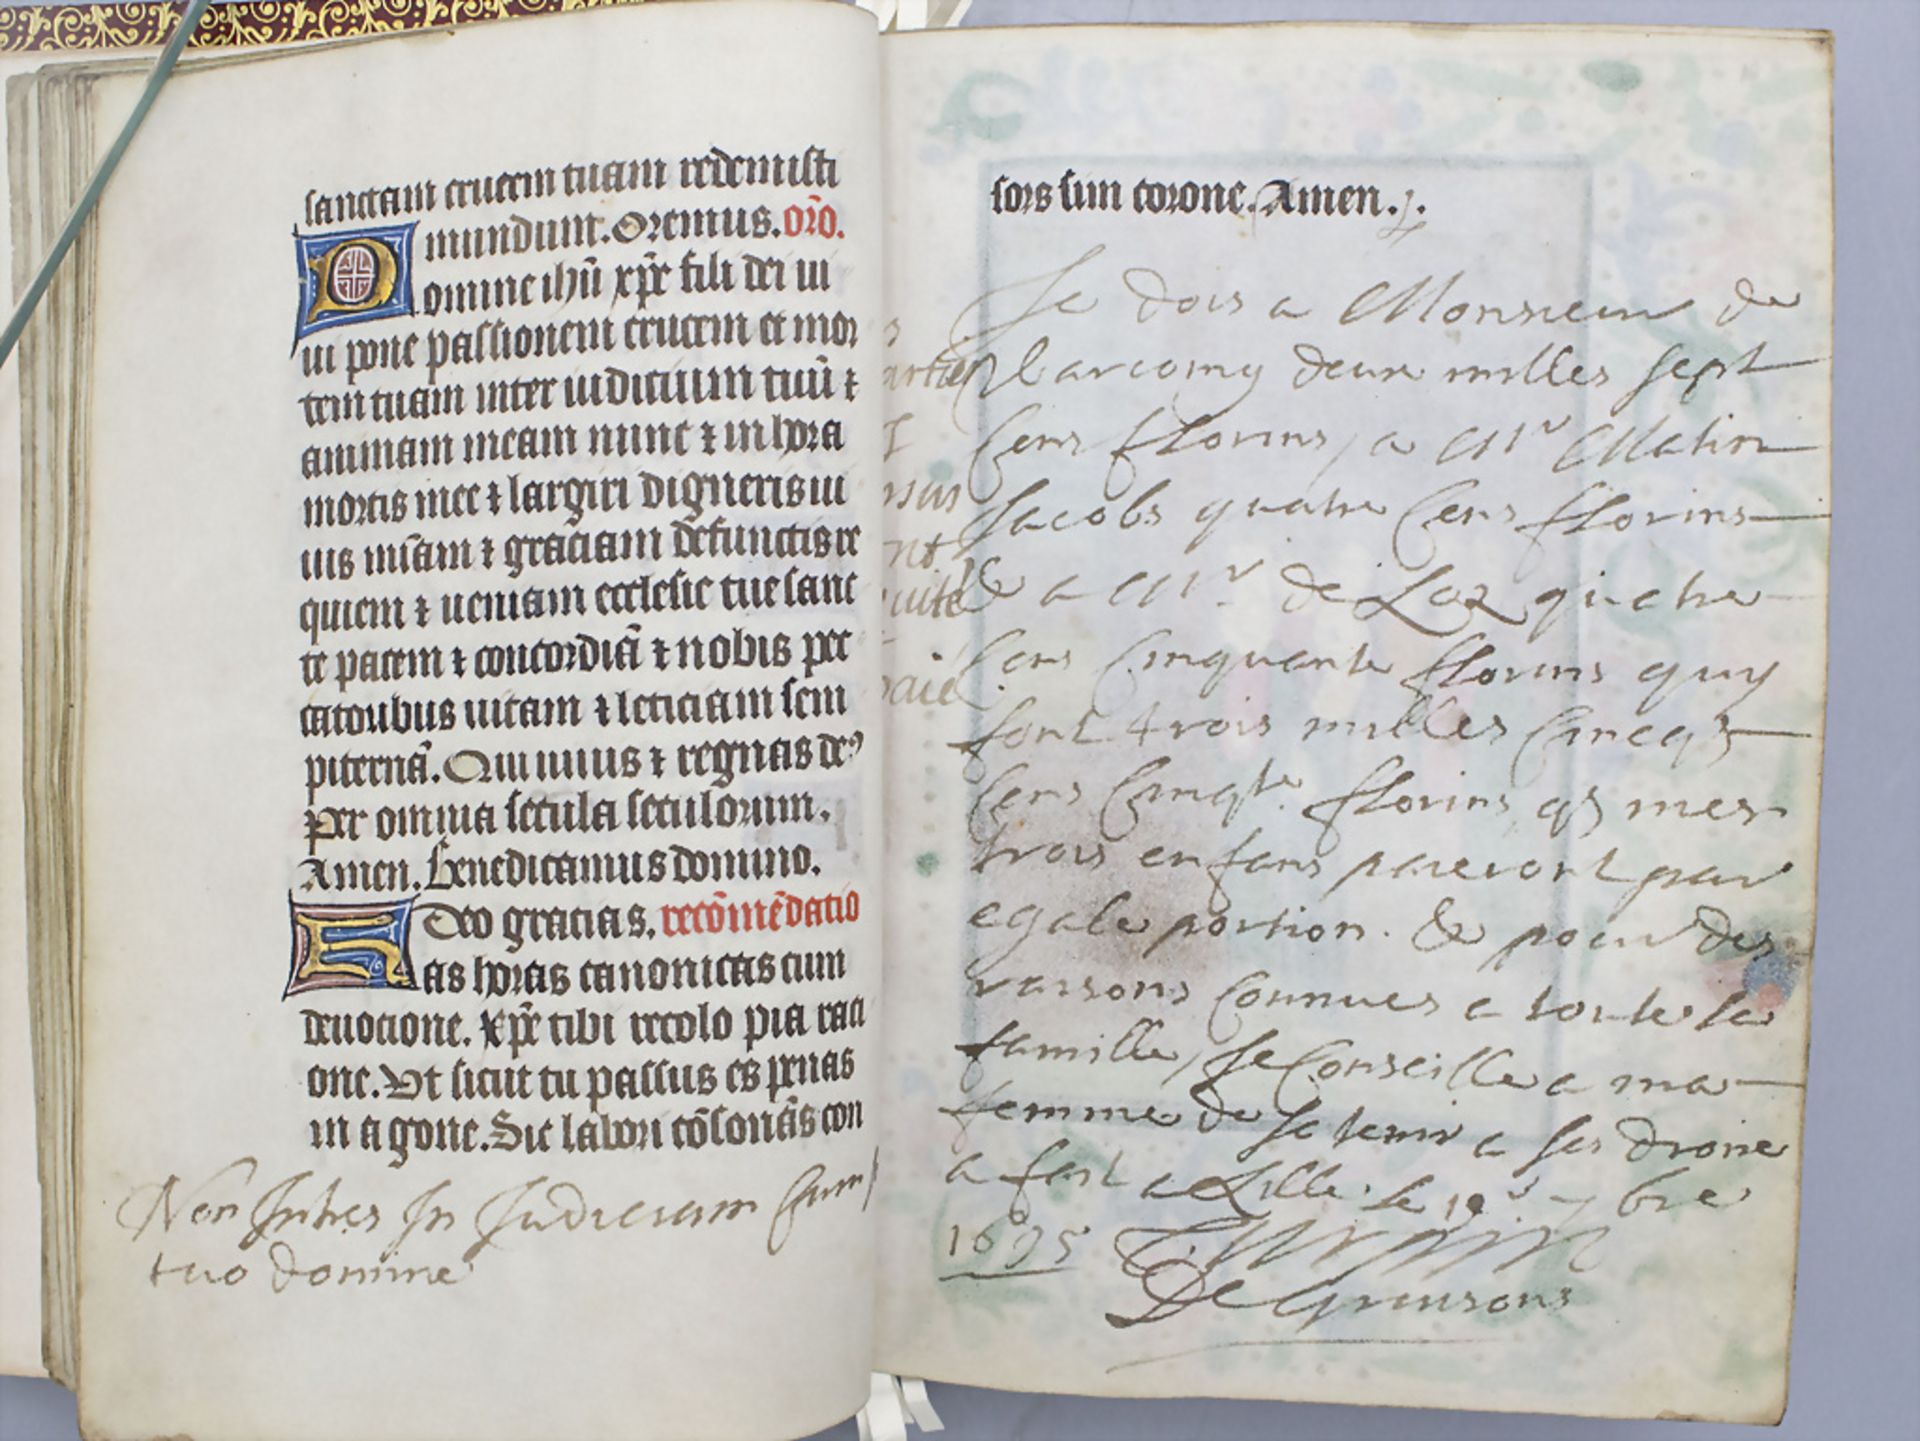 sanctam crucem tuam redemisti
mundum. Oremus. orõ.
Domine ihũ xp̃e fili dei ui
ui pone passionem crucem et mor
tem tuam inter iudicium tuũ ⁊
animam meam nunc ⁊ in hora
mortis mee ⁊ largiri digneris ui
uis misã̃m ⁊ graciam defunctis re
quiem ⁊ ueniam ecclesie tue sanc
te pacem ⁊ concordiã ⁊ nobis pec
catoribus uitam ⁊ leticiam sem
piternã. Qui uiuis ⁊ regnas deꝰ
Per omnia secula seculorum.
Amen. Benedicamus domino.
Deo gracias. recõmẽdatio
Has horas canonicas cum
deuocione. xp̃e tibi recolo pia raci
one. Ut sicut tu passus es penas
in agone. Sic labori cõsonãs con
Non Intres In Judicium Cum
tuo domine
sors sim corone. Amen.
Je dois a Monsieur de
deux milles sept
Cens florins, a Mr Matin
Jacobs quatre Cens florins
& a Mr. de Laz quatre
Cens Cinquante florins quy
font trois milles Cincqs
Cens Cinqte florins qs mes
trois enfans paieront par
egale portion. & pour des
raisons Connues a toute la
famille, Je Conseille a ma
femme de se tenir a ses droits
a fait a Lille le 19e 7bre
1695
De Gruisons